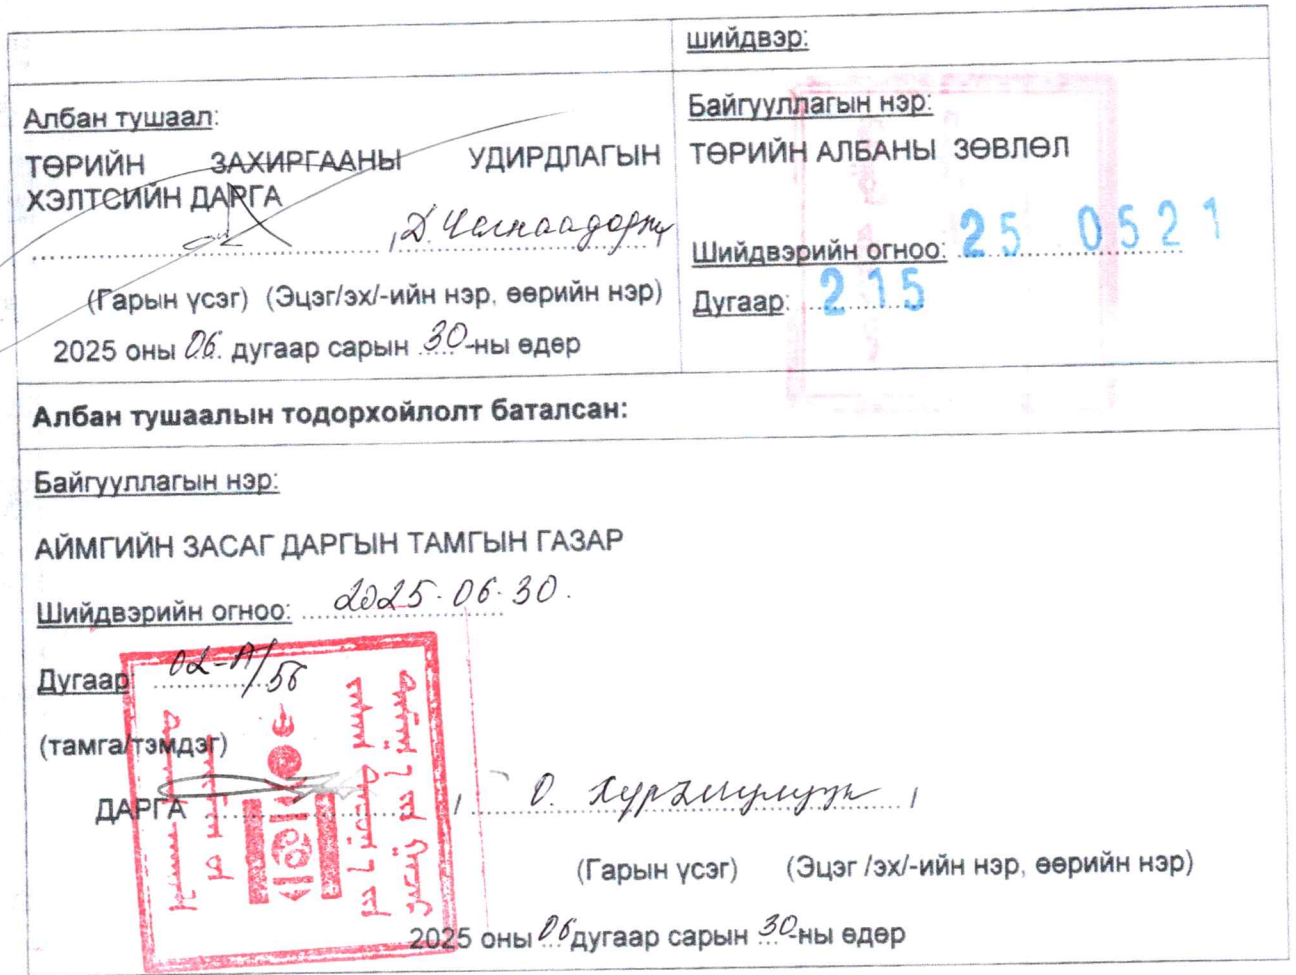 шийдвэр:
Албан тушаал:
ТӨРИЙН ЗАХИРГААНЫ УДИРДЛАГЫН
ХЭЛТСИЙН ДАРГА
Д.
(Гарын үсэг) (Эцэг/эх/-ийн нэр, өөрийн нэр)
2025 оны 06. дугаар сарын 30-ны өдөр
Байгууллагын нэр:
ТӨРИЙН АЛБАНЫ ЗӨВЛӨЛ
Шийдвэрийн огноо: 25 0521
Дугаар: 215
Албан тушаалын тодорхойлолт баталсан:
Байгууллагын нэр:
АЙМГИЙН ЗАСАГ ДАРГЫН ТАМГЫН ГАЗАР
Шийдвэрийн огноо: 2025.06.30.
Дугаар 02-А/56
(тамга/тэмдэг)
ДАРГА / О. /
(Гарын үсэг) (Эцэг /эх/-ийн нэр, өөрийн нэр)
2025 оны 06 дугаар сарын 30-ны өдөр